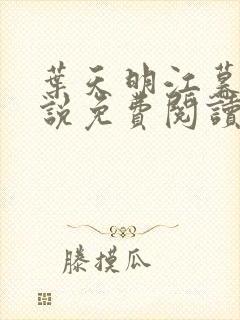 葉天明江慕
說免費閱讀
滕摸瓜